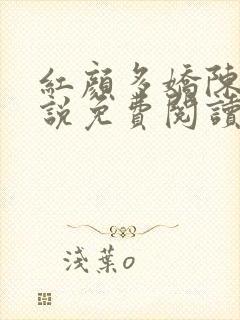 紅顏多嬌陳
說免費閱讀
淺葉o